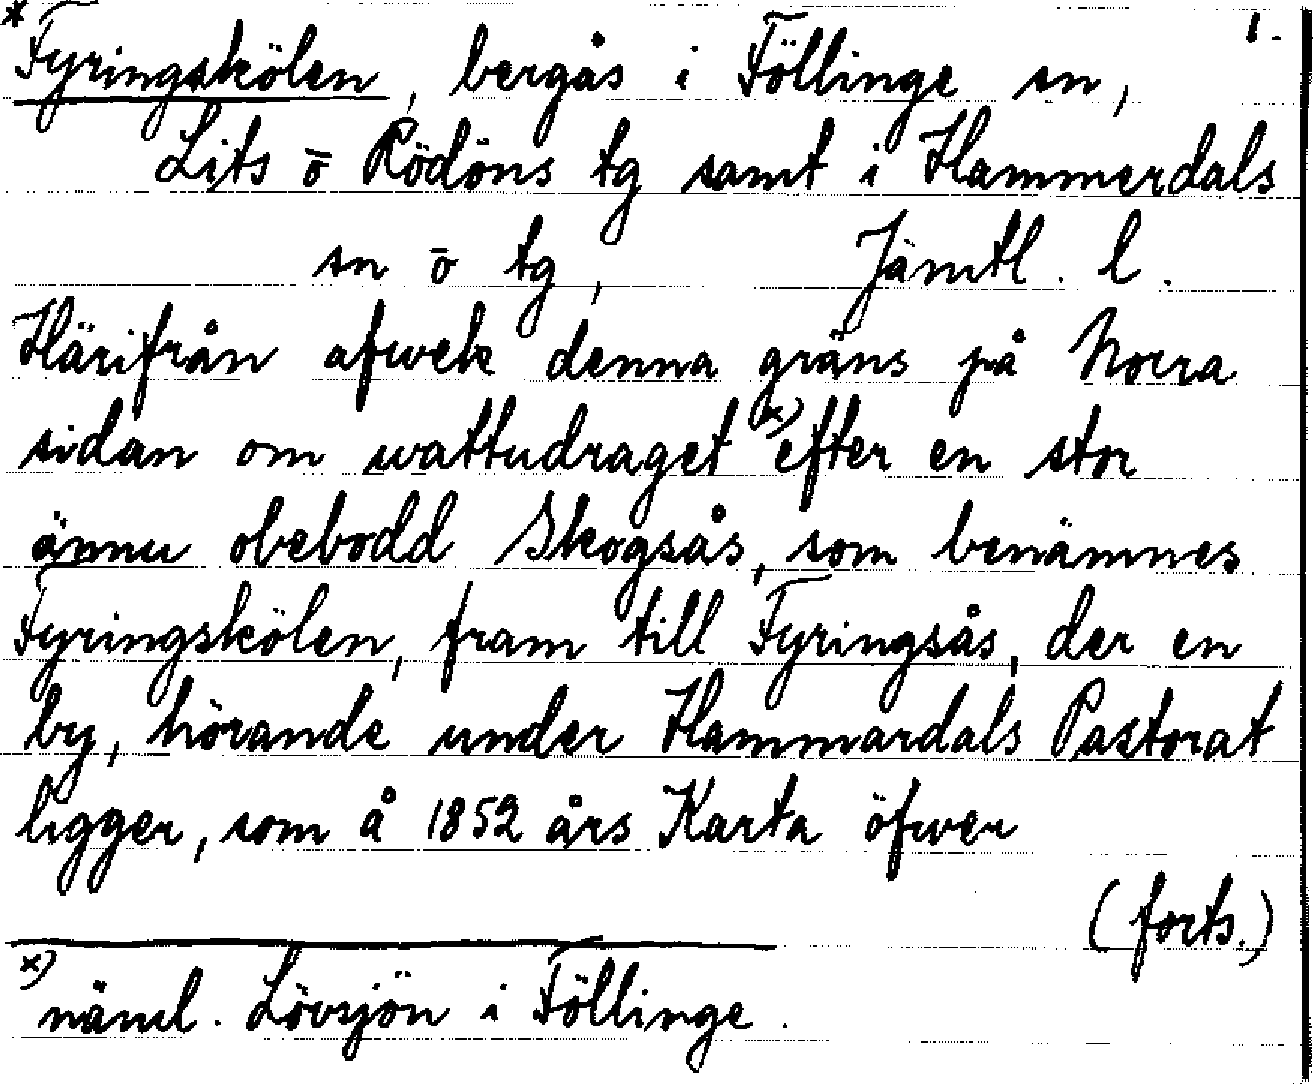 * Fyringskölen, bergås i Föllinge sn, 1.
Lits ō Rödöns tg samt i Hammerdals
sn ō tg, Jämtl. l.
Härifrån afwek denna gräns på Norra
sidan om wattudraget x) efter en stor
ännu obebodd Skogsås, som benämnes
Fyringskölen, fram till Fyringsås, der en
by, hörande under Hammardals Pastorat
ligger, som å 1852 års Karta öfwer
(forts.)
x) näml. Lövsjön i Föllinge.